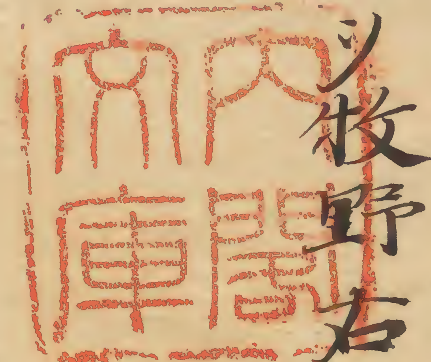 牧野右
内閣
文庫